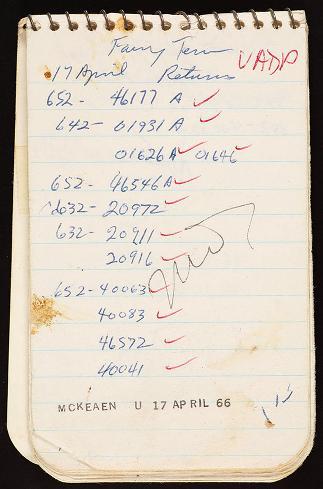 Fairy Tern
VADP
17 April Returns
652- 46177 A
642- 01931 A
01626A 01646
652- 46546A
632- 20972
632- 20911
20916
652- 40063
40083
46572
40041
MCKEAEN U 17 APRIL 66